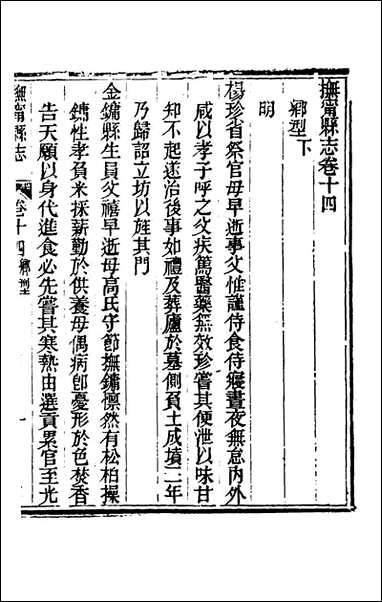 撫寧縣志卷十四
鄉型下
明
楊珍省祭官母早逝事父惟謹侍食侍寢晝夜無怠內外
咸以孝子呼之父疾篤醫藥無效珍嘗其便泄以味甘
知不起遂治後事如禮及葬廬於墓側負土成墳二年
乃歸詔立坊以旌其門
金鏞縣生員父禧早逝母高氏守節撫鏞懍然有松柏操
鏞性孝負米採薪勤於供養母偶病卽憂形於色焚香
告天願以身代進食必先嘗其寒熱由選貢累官至光
撫寧縣志
卷十四鄉型
一